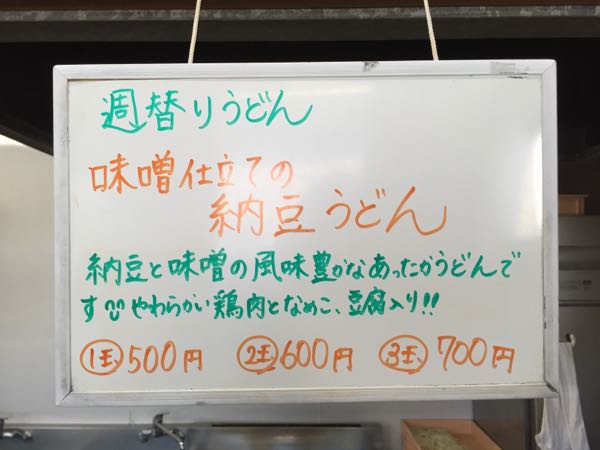 週替りうどん
味噌仕立ての
納豆うどん
納豆と味噌の風味豊かなあったかうどんで
す やわらかい鶏肉となめこ、豆腐入り!!
1玉 500円 2玉 600円 3玉 700円